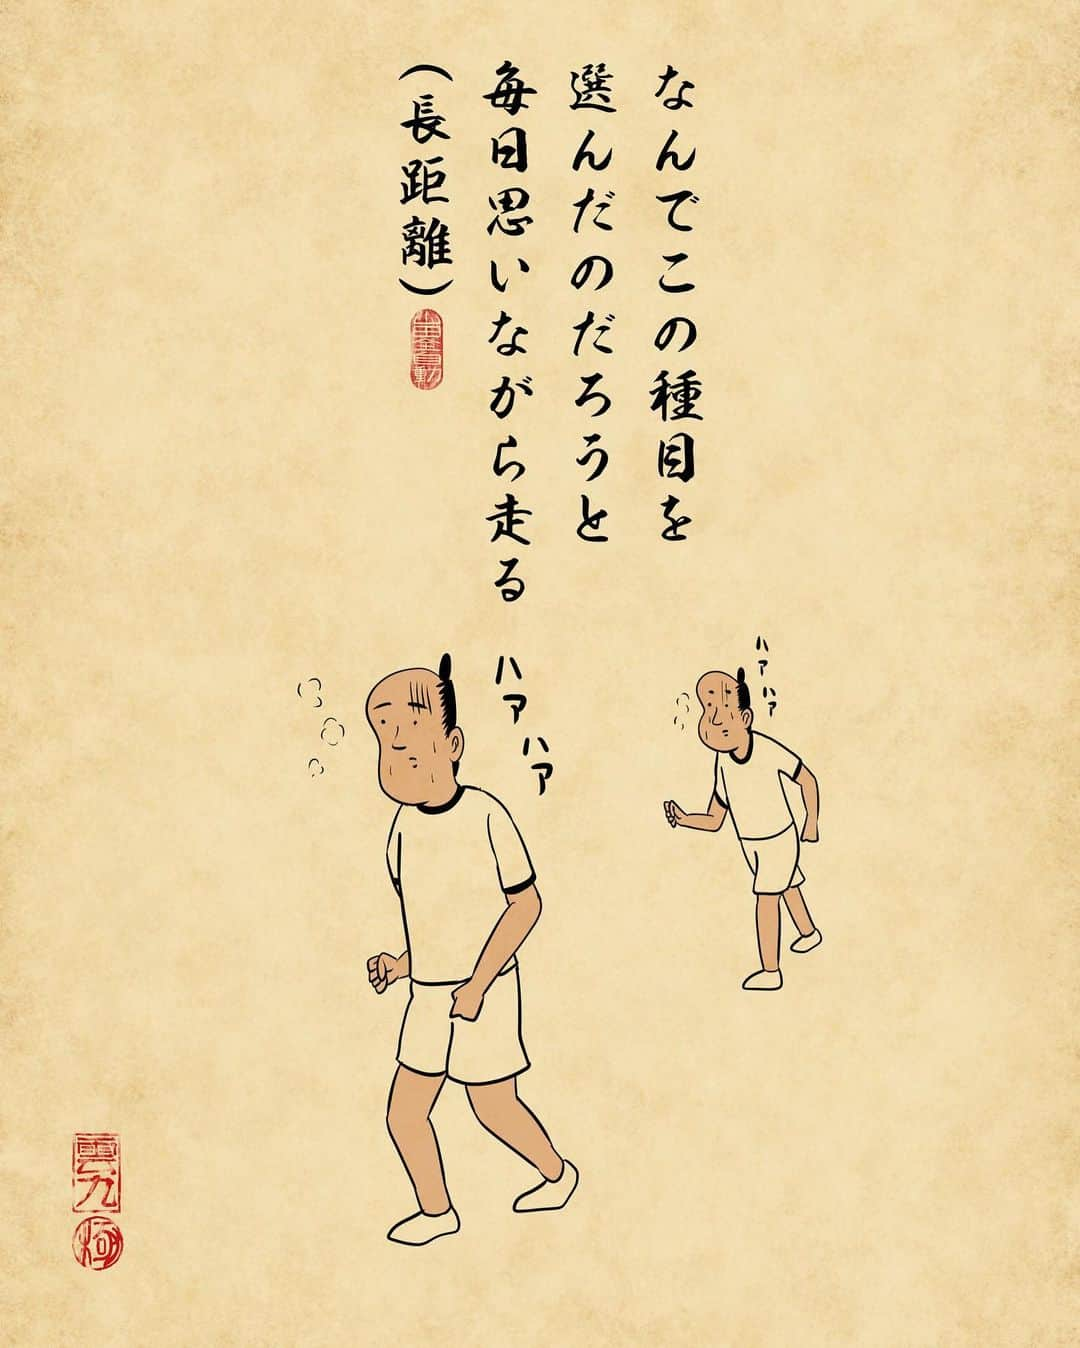 なんでこの種目を
選んだのだろうと
毎日思いながら走る
（長距離）
ハァハァ
ハァハァ